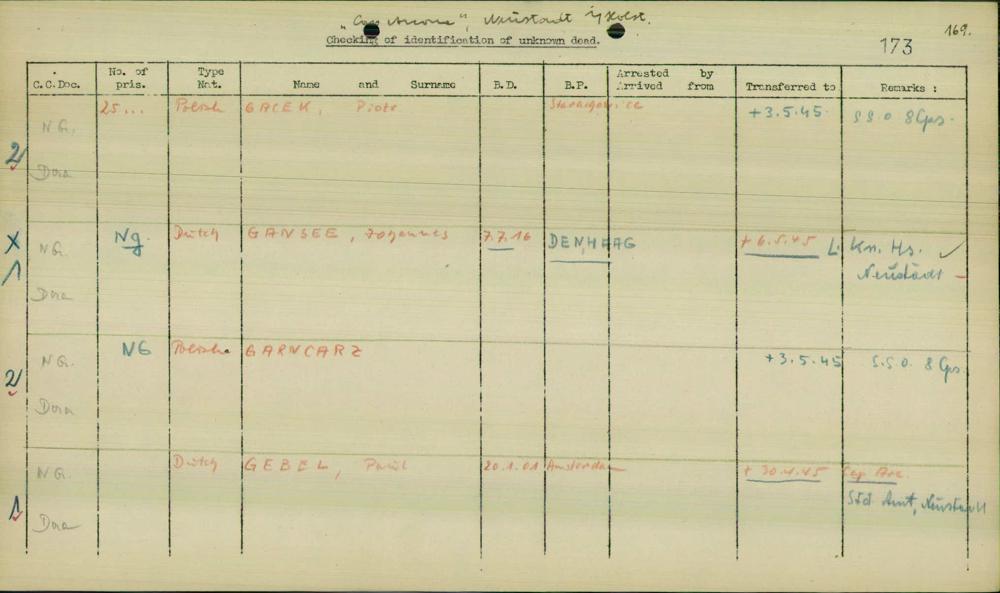 "Cap Arcona", Neustadt i/Holst.
Checking of identification of unknown dead.
173
169.
C.C.Doc.
No. of pris.
Type Nat.
Name and Surname
B.D.
B.P.
Arrested by
Arrived from
Transferred to
Remarks :
25... Polish GACEK, Piotr +3.5.45. S.S.O. 8 Gps.
NG.
2
Dora
X NG. Ng. Dutch GANSEE, Johannes 7.7.16 DEN HAAG + 6.5.45 L. Kn. Hs. ✓
1 Neustadt –
Dora
NG. NG Polish GARNCARZ +3.5.45 S.S.O. 8 Gps.
2
Dora
NG. Dutch GEBEL, Paul 20.1.01 Amsterdam + 30.4.45 Cap Arc.
1 Std. Amt, Neustadt
Dora